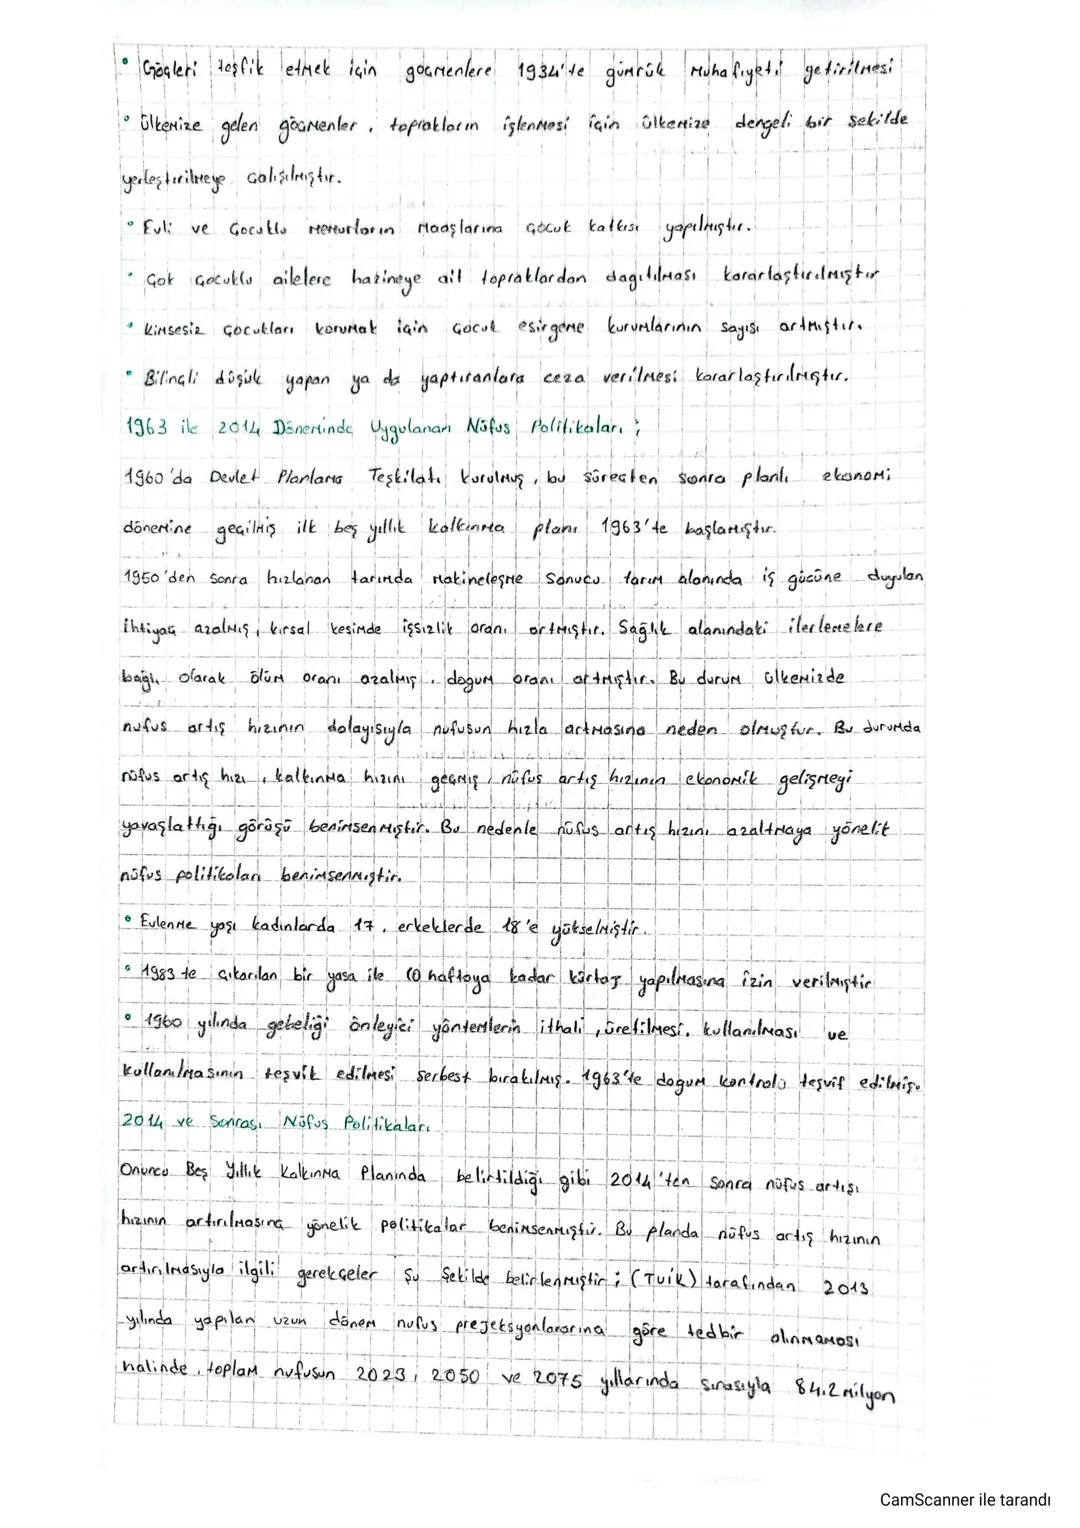 • Göçleri teşfik etmek için göçmenlere 1934'te gümrük muhafiyeti getirilmesi
• Ülkemize gelen göçmenler, toprakların işlenmesi için ülkemize dengeli bir şekilde
yerleştirilmeye çalışılmıştır.
• Evli ve çocuklu memurların maaşlarına çocuk katkısı yapılmıştır.
• Çok çocuklu ailelere hazineye ait topraklardan dağıtılması kararlaştırılmıştır
• Kimsesiz çocukları korumak için çocuk esirgeme kurumlarının sayısı artmıştır.
• Bilinçli düşük yapan ya da yaptıranlara ceza verilmesi kararlaştırılmıştır.
1963 ile 2014 Döneminde Uygulanan Nüfus Politikaları;
1960'da Devlet Planlama Teşkilatı kurulmuş, bu süreçten sonra planlı ekonomi
dönemine geçilmiş ilk beş yıllık kalkınma planı 1963'te başlamıştır.
1950'den sonra hızlanan tarımda makineleşme sonucu tarım alanında iş gücüne duyulan
ihtiyaç azalmış, kırsal kesimde işsizlik oranı artmıştır. Sağlık alanındaki ilerlemelere
bağlı olarak ölüm oranı azalmış, doğum oranı artmıştır. Bu durum ülkemizde
nufus artış hızının dolayısıyla nufusun hızla artmasına neden olmuştur. Bu durumda
nüfus artış hızı, kalkınma hızını geçmiş, nüfus artış hızının ekonomik gelişmeyi
yavaşlattığı görüşü benimsenmiştir. Bu nedenle nüfus artış hızını azaltmaya yönelik
nüfus politikaları benimsenmiştir.
• Evlenme yaşı kadınlarda 17, erkeklerde 18'e yükselmiştir.
• 1983 te çıkarılan bir yasa ile 10 haftaya kadar kürtaj yapılmasına izin verilmiştir
• 1960 yılında gebeliği önleyici yöntemlerin ithali, üretilmesi, kullanılması ve
kullanılmasının teşvik edilmesi serbest bırakılmış. 1963'te doğum kontrolü teşvif edilmiş.
2014 ve Sonrası Nüfus Politikaları
Onuncu Beş Yıllık Kalkınma Planında belirtildiği gibi 2014'ten sonra nüfus artışı
hızının artırılmasına yönelik politikalar benimsenmiştir. Bu planda nüfus artış hızının
artırılmasıyla ilgili gerekçeler şu şekilde belirlenmiştir; (TUİK) tarafından 2013
yılında yapılan uzun dönem nufus prejeksyonlararına göre tedbir alınmaması
halinde, toplam nufusun 2023, 2050 ve 2075 yıllarında sırasıyla 84.2 milyon
CamScanner ile tarandı